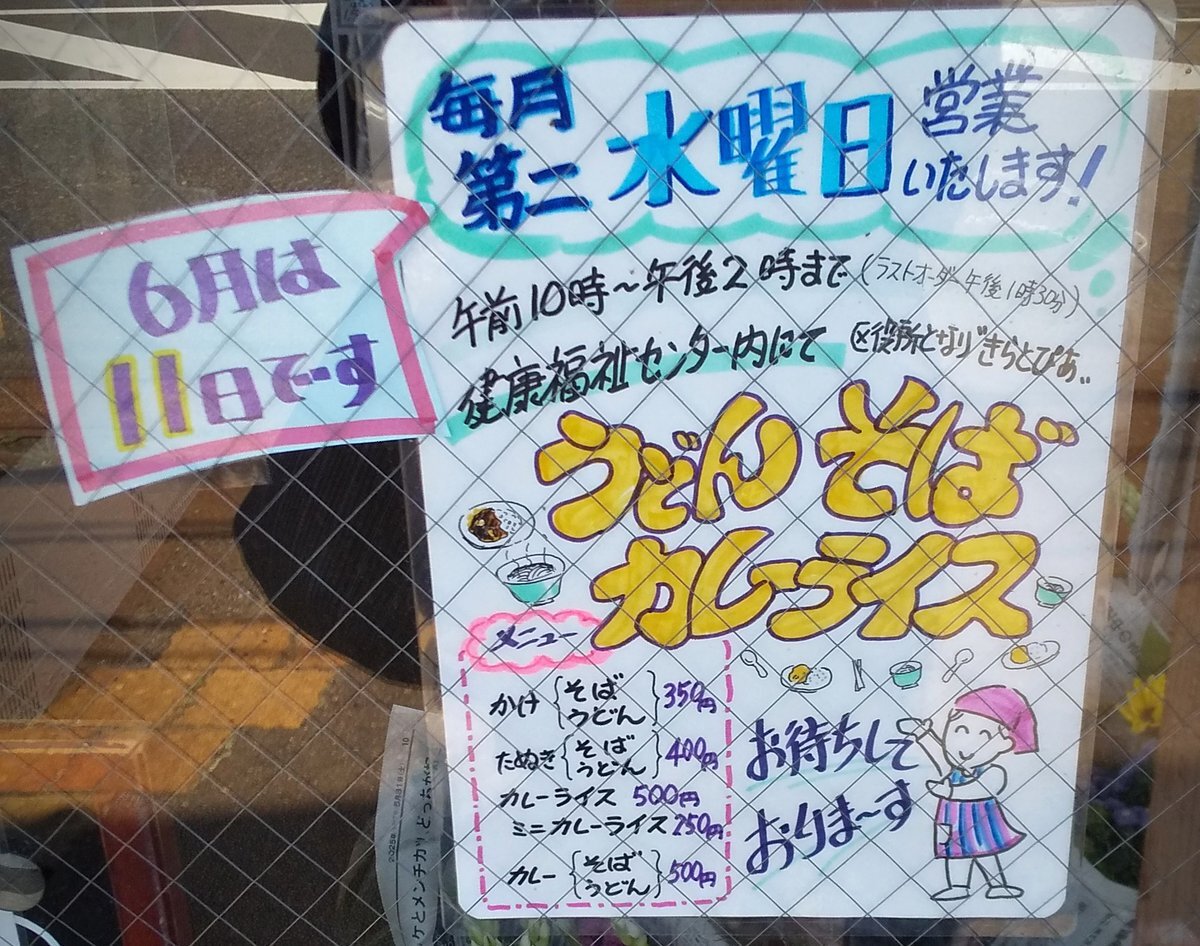 毎月
第二
水曜日
営業
いたします!
6月は
11日です
午前10時〜午後2時まで(ラストオーダー午後1時30分)
健康福祉センター内にて 区役所となり"きらとぴあ"
うどん そば
カレーライス
メニュー
かけ{そば うどん}350円
たぬき{そば うどん}400円
カレーライス 500円
ミニカレーライス 250円
カレー{そば うどん}500円
お待ちして
おりま〜す